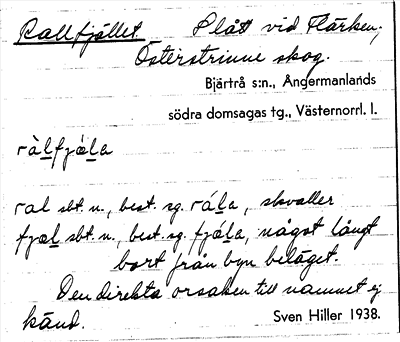 Rallfjället Slått vid Flärken,
Österstrinne skog.
Bjärtrå s:n., Ångermanlands
södra domsagas tg., Västernorrl. l.
ràlfjæla
ral sbt. n., best. sg. ràla, skvaller
fjæl sbt. n., best. sg. fjæla, något långt
bort från byn beläget.
Den direkta orsaken till namnet ej
känd. Sven Hiller 1938.